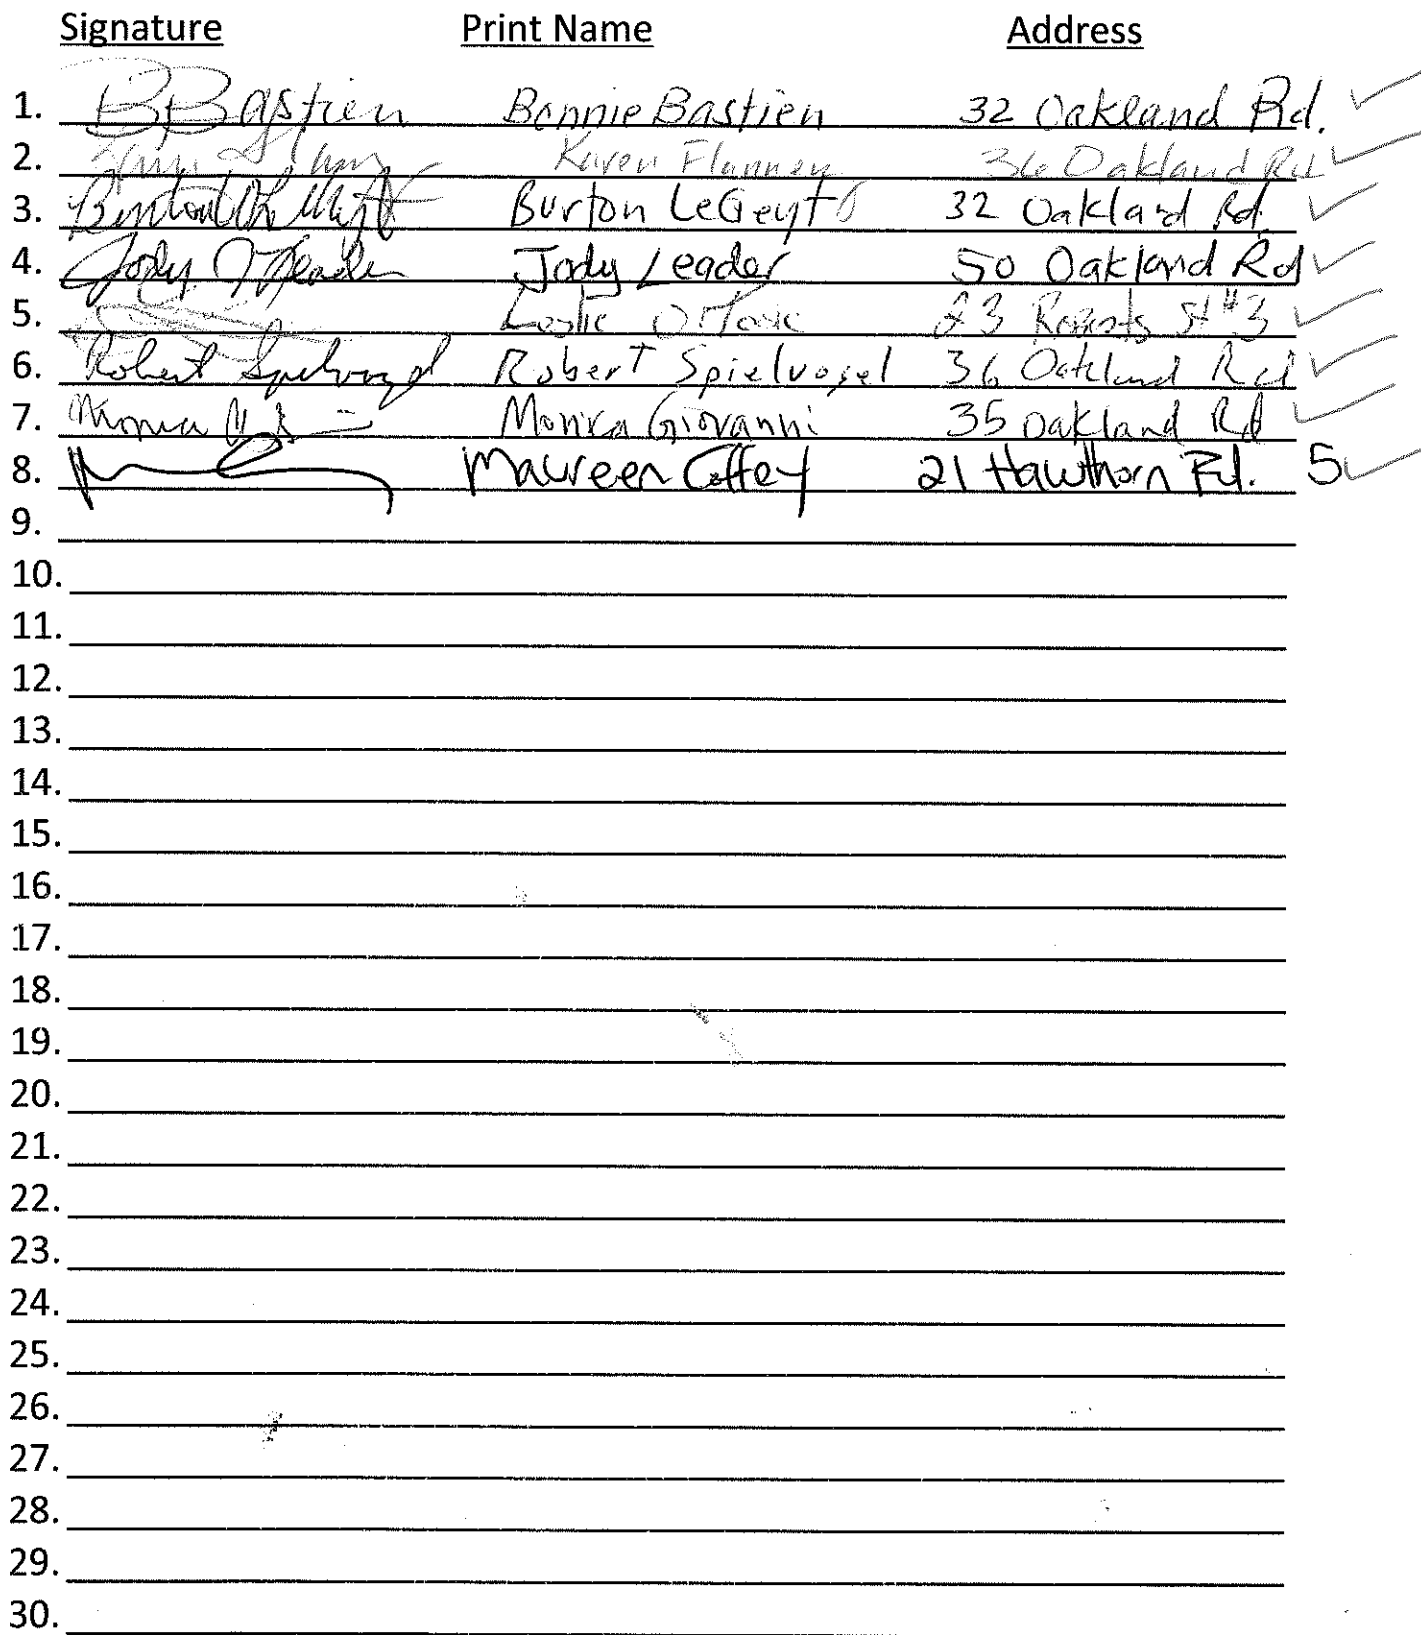 Signature Print Name Address
1. BBastien Bonnie Bastien 32 Oakland Rd. ✓
2. Karen Flannery 36 Oakland Rd ✓
3. Burton LeGeyt 32 Oakland Rd. ✓
4. Jody Leader Jody Leader 50 Oakland Rd ✓
5. Leslie 23 St #3 ✓
6. Robert Spielvogel Robert Spielvogel 36 Oakland Rd ✓
7. Monica Monica Giovanni 35 Oakland Rd ✓
8. Maureen Coffey 21 Hawthorn Rd. 5 ✓
9.
10.
11.
12.
13.
14.
15.
16.
17.
18.
19.
20.
21.
22.
23.
24.
25.
26.
27.
28.
29.
30.